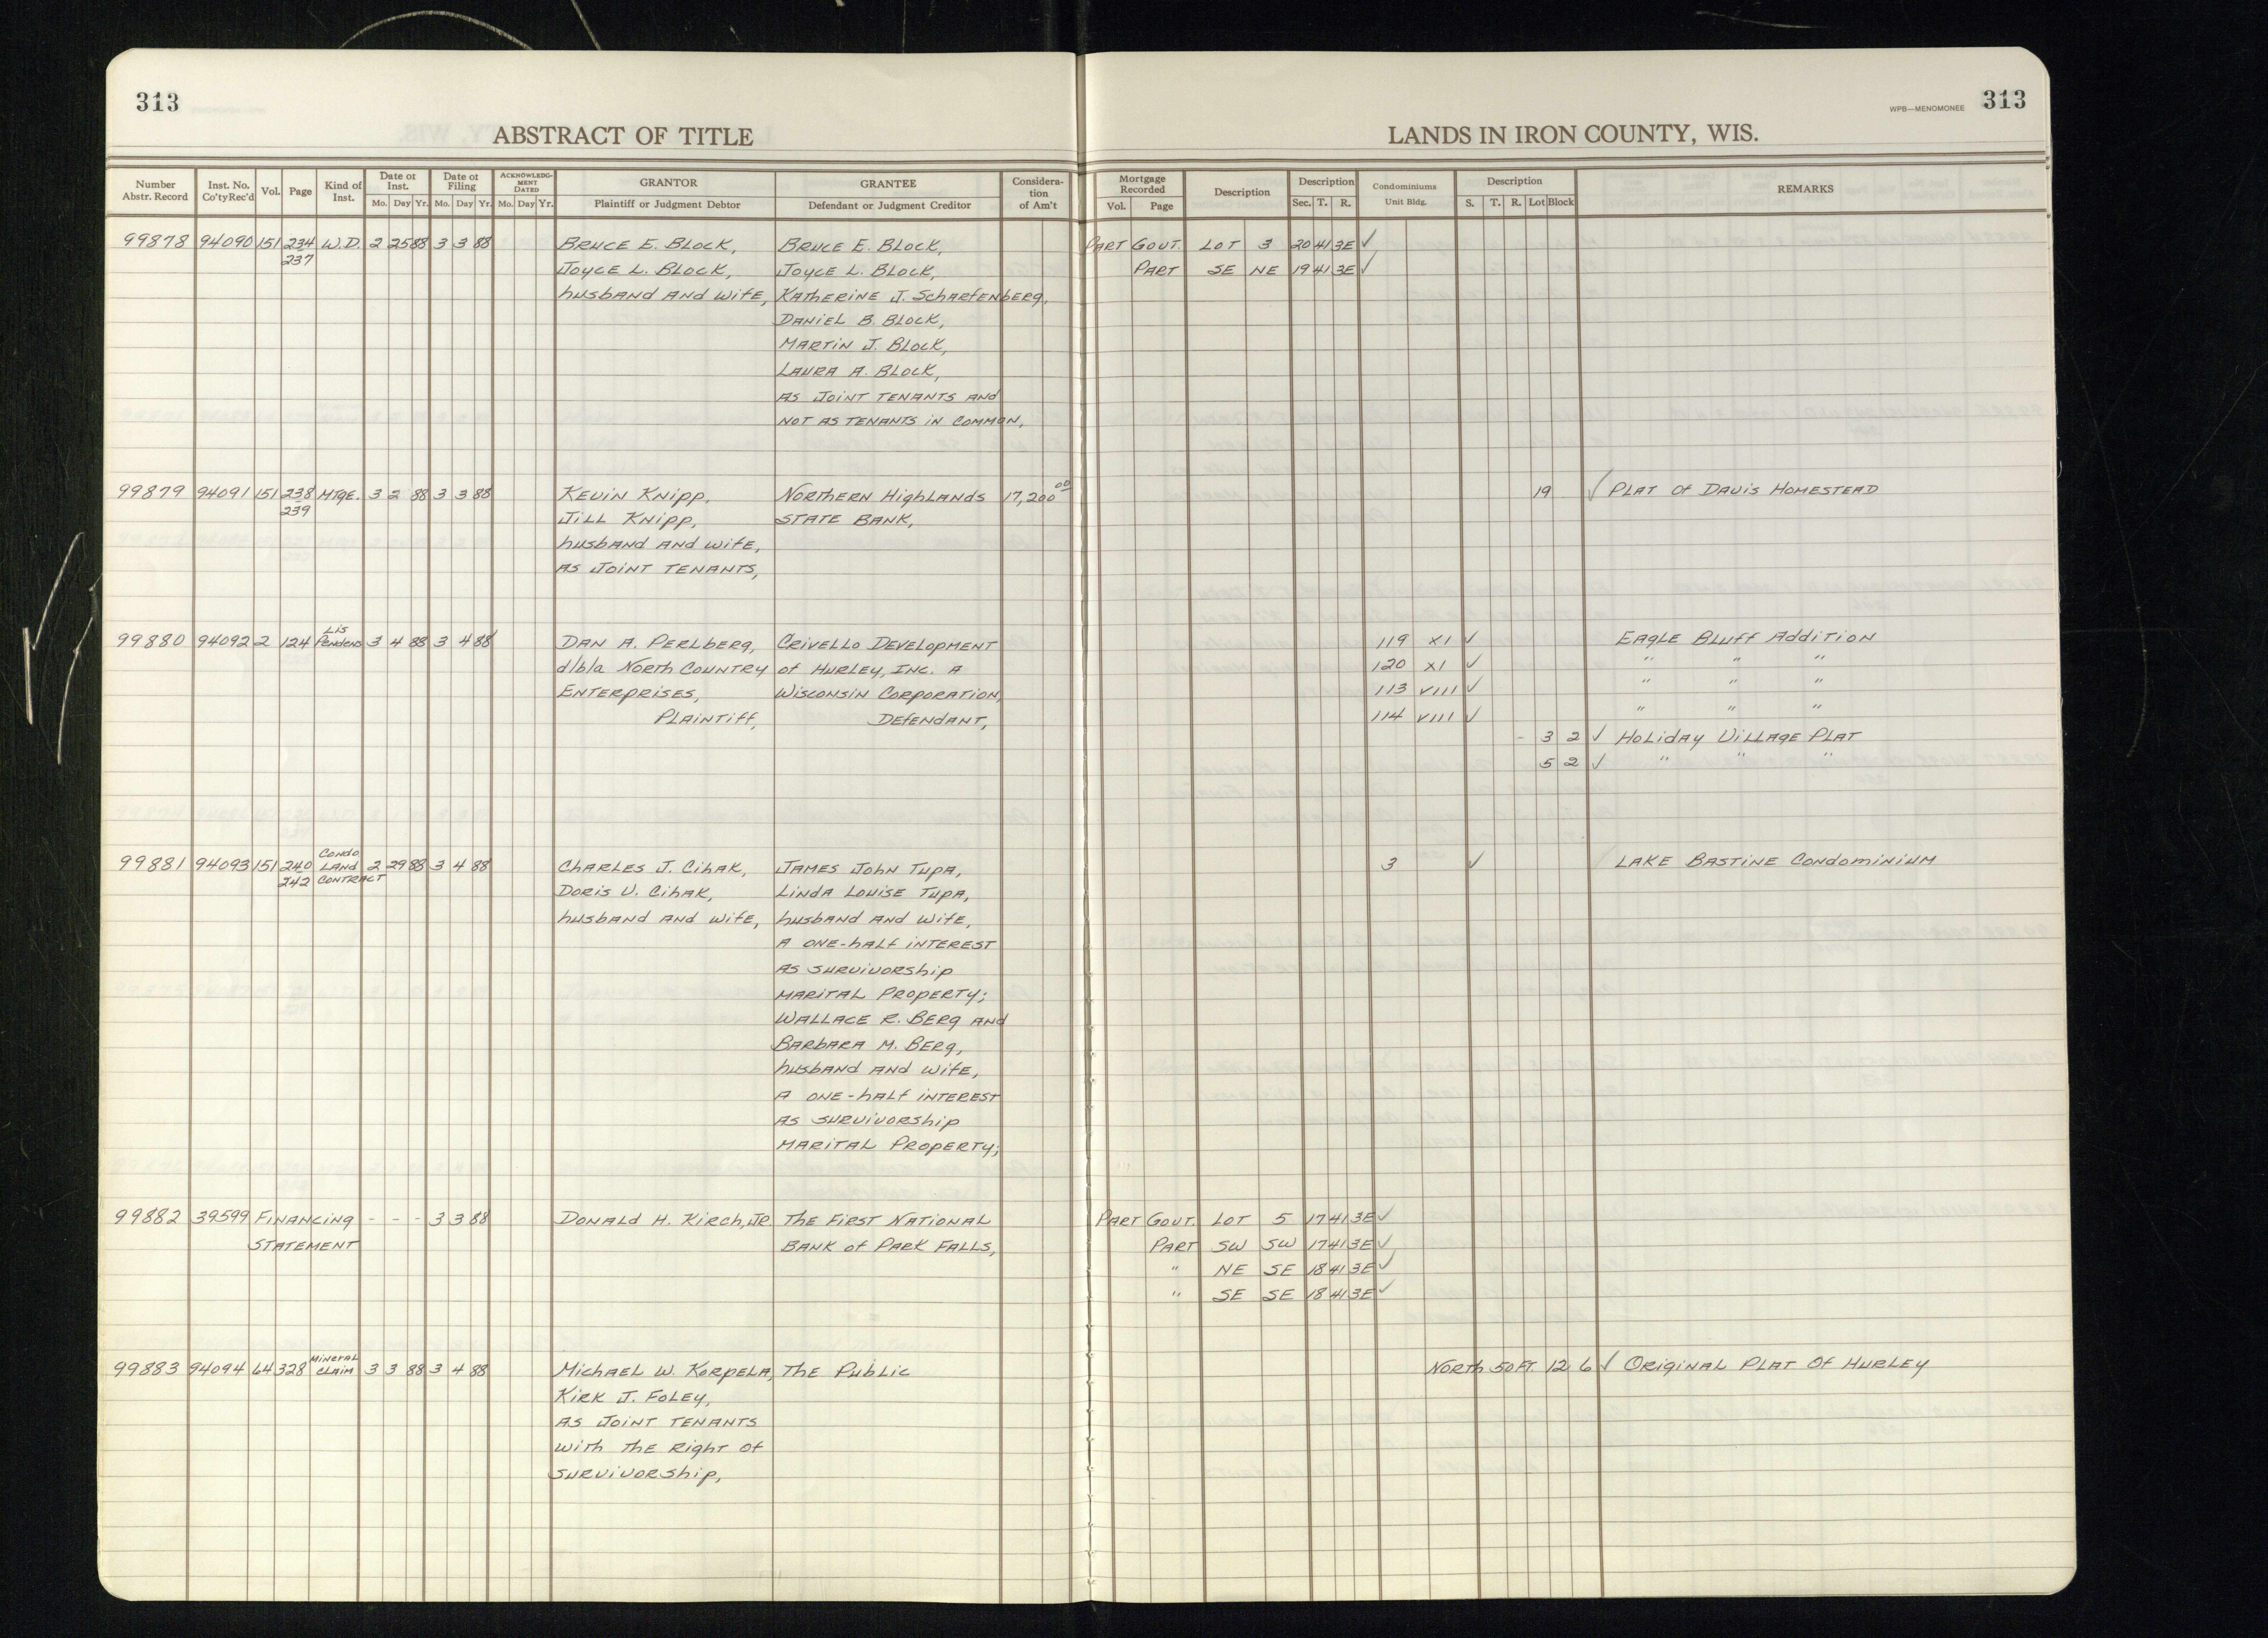 313
WPB—MENOMONEE 313
ABSTRACT OF TITLE
LANDS IN IRON COUNTY, WIS.
Number Abstr. Record
Inst. No. Co'tyRec'd
Vol.
Page
Kind of Inst.
Date of Inst.
Mo. Day Yr.
Date of Filing
Mo. Day Yr.
ACKNOWLEDGMENT DATED
Mo. Day Yr.
GRANTOR
Plaintiff or Judgment Debtor
GRANTEE
Defendant or Judgment Creditor
Consideration of Am't
Mortgage Recorded
Vol. Page
Description
Description
Sec. T. R.
Condominiums
Unit Bldg.
Description
S. T. R. Lot Block
REMARKS
99878 94090 151 234 W.D. 2 25 88 3 3 88 BRUCE E. BLOCK, BRUCE E. BLOCK, PART GOVT. LOT 3 20 41 3E ✓
237 JOYCE L. BLOCK, JOYCE L. BLOCK, PART SE NE 19 41 3E ✓
husband AND wife, KATHERINE J. SCHARFENBERG,
DANIEL B. BLOCK,
MARTIN J. BLOCK,
LAURA A. BLOCK,
AS JOINT TENANTS AND
NOT AS TENANTS IN COMMON,
99879 94091 151 238 MTGE. 3 2 88 3 3 88 KEVIN KNIPP, NORTHERN HIGHLANDS 17,200 00 19 ✓ PLAT OF DAVIS HOMESTEAD
239 JILL KNIPP, STATE BANK,
husband AND wife,
AS JOINT TENANTS,
99880 94092 2 124 Lis Pendens 3 4 88 3 4 88 DAN A. PERLBERG, CRIVELLO DEVELOPMENT 119 XI ✓ EAGLE BLUFF ADDITION
d/b/a NORTH COUNTRY of HURLEY, INC. A 120 XI ✓ " " "
ENTERPRISES, WISCONSIN CORPORATION, 113 VIII ✓ " " "
PLAINTIFF, DEFENDANT, 114 VIII ✓ " " "
- 3 2 ✓ HOLIDAY VILLAGE PLAT
5 2 ✓ " " "
99881 94093 151 240 CONDO LAND 2 29 88 3 4 88 CHARLES J. CIHAK, JAMES JOHN TUPA, 3 ✓ LAKE BASTINE CONDOMINIUM
242 CONTRACT DORIS V. CIHAK, LINDA LOUISE TUPA,
husband AND wife, husband AND wife,
A ONE-half INTEREST
AS SURVIVORSHIP
MARITAL PROPERTY;
WALLACE R. BERG AND
BARBARA M. BERG,
husband AND wife,
A ONE-half INTEREST
AS SURVIVORSHIP
MARITAL PROPERTY;
99882 39599 FINANCING - - - 3 3 88 DONALD H. KIRCH, JR. THE FIRST NATIONAL PART GOVT. LOT 5 17 41 3E ✓
STATEMENT BANK of PARK FALLS, PART SW SW 17 41 3E ✓
" NE SE 18 41 3E ✓
" SE SE 18 41 3E ✓
99883 94094 64 328 MINERAL CLAIM 3 3 88 3 4 88 MICHAEL W. KORPELA, THE PUBLIC NORTH 50 FT. 12 6 ✓ ORIGINAL PLAT OF HURLEY
KIRK J. FOLEY,
AS JOINT TENANTS
WITH THE RIGHT OF
SURVIVORSHIP,